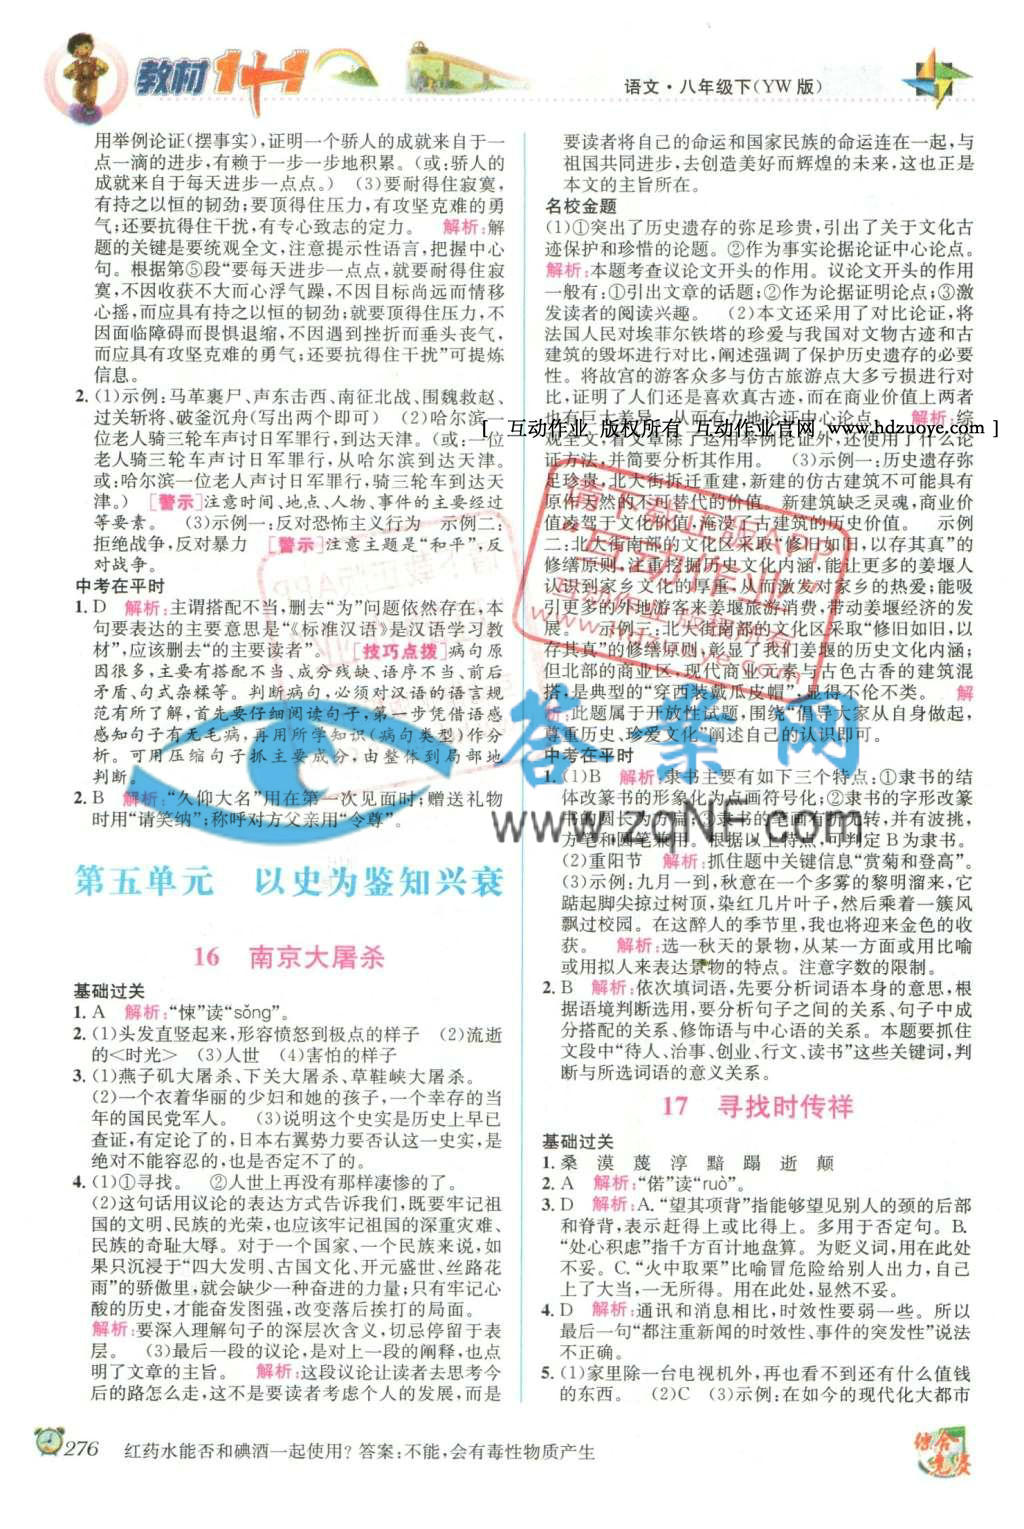 教材1+1
语文·八年级下(YW版)
用举例论证(摆事实),证明一个骄人的成就来自于一
点一滴的进步,有赖于一步一步地积累。(或:骄人的
成就来自于每天进步一点点。) (3)要耐得住寂寞,
有持之以恒的韧劲;要顶得住压力,有攻坚克难的勇
气;还要抗得住干扰,有专心致志的定力。 解析:解
题的关键是要统观全文,注意提示性语言,把握中心
句。根据第⑤段“要每天进步一点点,就要耐得住寂
寞,不因收获不大而心浮气躁,不因目标尚远而情移
心摇,而应具有持之以恒的韧劲;就要顶得住压力,不
因面临障碍而畏惧退缩,不因遇到挫折而垂头丧气,
而应具有攻坚克难的勇气;还要抗得住干扰”可提炼
信息。
2. (1)示例:马革裹尸、声东击西、南征北战、围魏救赵、
过关斩将、破釜沉舟(写出两个即可) (2)哈尔滨一
位老人骑三轮车声讨日军罪行,到达天津。(或:一位
老人骑三轮车声讨日军罪行,从哈尔滨到达天津。
或:哈尔滨一位老人声讨日军罪行,骑三轮车到达天
津。) [警示]注意时间、地点、人物、事件的主要经过
等要素。 (3)示例一:反对恐怖主义行为 示例二:
拒绝战争,反对暴力 [警示]注意主题是“和平”,反
对战争。
中考在平时
1. D 解析:主谓搭配不当,删去“为”问题依然存在,本
句要表达的主要意思是“《标准汉语》是汉语学习教
材”,应该删去“的主要读者”。 [技巧点拨]病句原
因很多,主要有搭配不当、成分残缺、语序不当、前后
矛盾、句式杂糅等。判断病句,必须对汉语的语言规
范有所了解,首先要仔细阅读句子,第一步凭借语感
感知句子有无毛病,再用所学知识(病句类型)作分
析。可用压缩句子抓主要成分,由整体到局部地
判断。
2. B 解析:“久仰大名”用在第一次见面时;赠送礼物
时用“请笑纳”;称呼对方父亲用“令尊”。
第五单元 以史为鉴知兴衰
16 南京大屠杀
基础过关
1. A 解析:“悚”读“sǒng”。
2. (1)头发直竖起来,形容愤怒到极点的样子 (2)流逝
的<时光> (3)人世 (4)害怕的样子
3. (1)燕子矶大屠杀、下关大屠杀、草鞋峡大屠杀。
(2)一个衣着华丽的少妇和她的孩子,一个幸存的当
年的国民党军人。 (3)说明这个史实是历史上早已
查证,有定论了的,日本右翼势力要否认这一史实,是
绝对不能容忍的,也是否定不了的。
4. (1)①寻找。 ②人世上再没有那样凄惨的了。
(2)这句话用议论的表达方式告诉我们,既要牢记祖
国的文明、民族的光荣,也应该牢记祖国的深重灾难、
民族的奇耻大辱。对于一个国家、一个民族来说,如
果只沉浸于“四大发明、古国文化、开元盛世、丝路花
雨”的骄傲里,就会缺少一种奋进的力量;只有牢记心
酸的历史,才能奋发图强,改变落后挨打的局面。
解析:要深入理解句子的深层次含义,切忌停留于表
层。 (3)最后一段的议论,是对上一段的阐释,也点
明了文章的主旨。 解析:这段议论让读者去思考今
后的路怎么走,这不是要读者考虑个人的发展,而是
要读者将自己的命运和国家民族的命运连在一起,与
祖国共同进步,去创造美好而辉煌的未来,这也正是
本文的主旨所在。
名校金题
(1)①突出了历史遗存的弥足珍贵,引出了关于文化古
迹保护和珍惜的论题。②作为事实论据论证中心论点。
解析:本题考查议论文开头的作用。议论文开头的作用
一般有:①引出文章的话题;②作为论据证明论点;③激
发读者的阅读兴趣。 (2)本文还采用了对比论证,将
法国人民对埃菲尔铁塔的珍爱与我国对文物古迹和古
建筑的毁坏进行对比,阐述强调了保护历史遗存的必要
性。将故宫的游客众多与仿古旅游点大多亏损进行对
比,证明了人们还是喜欢真古迹,而在商业价值上两者
也有巨大差异,从而有力地论证中心论点。 解析:综
[ 互动作业 版权所有 互动作业官网 www.hdzuoye.com ]
观全文,看文章除了运用举例论证外,还使用了什么论
证方法,并简要分析其作用。 (3)示例一:历史遗存弥
足珍贵,北大街拆迁重建,新建的仿古建筑不可能具有
原作天然的不可替代的价值。新建筑缺乏灵魂,商业价
值凌驾于文化价值,淹没了古建筑的历史价值。 示例
二:北大街南部的文化区采取“修旧如旧,以存其真”的
修缮原则,注重挖掘历史文化内涵,能让更多的姜堰人
认识到家乡文化的厚重,从而激发对家乡的热爱;能吸
引更多的外地游客来姜堰旅游消费,带动姜堰经济的发
展。 示例三:北大街南部的文化区采取“修旧如旧,以
存其真”的修缮原则,彰显了我们姜堰的历史文化内涵;
但北部的商业区,现代商业元素与古色古香的建筑混
搭,是典型的“穿西装戴瓜皮帽”,显得不伦不类。 解
析:此题属于开放性试题,围绕“倡导大家从自身做起,
尊重历史、珍爱文化”阐述自己的认识即可。
中考在平时
1. (1)B 解析:隶书主要有如下三个特点:①隶书的结
体改篆书的形象化为点画符号化;②隶书的字形改篆
书的圆长为方扁;③隶书的笔画有折无转,并有波挑,
方笔和圆笔兼用。根据以上特点,可判定B为隶书。
(2)重阳节 解析:抓住题中关键信息“赏菊和登高”。
(3)示例:九月一到,秋意在一个多雾的黎明溜来,它
踮起脚尖掠过树顶,染红几片叶子,然后乘着一簇风
飘过校园。在这醉人的季节里,我也将迎来金色的收
获。 解析:选一秋天的景物,从某一方面或用比喻
或用拟人来表达景物的特点。注意字数的限制。
2. B 解析:依次填词语,先要分析词语本身的意思,根
据语境判断选用,要分析句子之间的关系、句子中成
分搭配的关系、修饰语与中心语的关系。本题要抓住
文段中“待人、治事、创业、行文、读书”这些关键词,判
断与所选词语的意义关系。
17 寻找时传祥
基础过关
1. 桑 漠 蔑 淳 黯 蹋 逝 颠
2. A 解析:“偌”读“ruò”。
3. D 解析:A.“望其项背”指能够望见别人的颈的后部
和脊背,表示赶得上或比得上。多用于否定句。B.
“处心积虑”指千方百计地盘算。为贬义词,用在此处
不妥。C.“火中取栗”比喻冒危险给别人出力,自己
上了大当,一无所得。用在此处,显然不妥。
4. D 解析:通讯和消息相比,时效性要弱一些。所以
最后一句“都注重新闻的时效性、事件的突发性”说法
不正确。
5. (1)家里除一台电视机外,再也看不到还有什么值钱
的东西。 (2)C (3)示例:在如今的现代化大都市
请下载正版APP
“互动作业”
www.hdzuoye.com
互动作业 版权所有
答案网
www.zqNF.com
276
红药水能否和碘酒一起使用?答案:不能,会有毒性物质产生
综合
竞赛